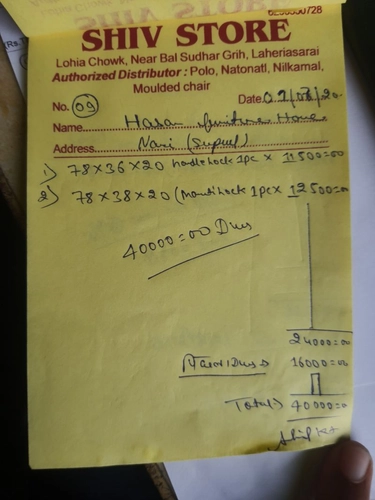 SHIV STORE
Lohia Chowk, Near Bal Sudhar Grih, Laheriasarai
Authorized Distributor : Polo, Natonatl, Nilkamal,
Moulded chair
No. 09 Date. 02/08/20
Name. Hasan furniture Home
Address. (Supaul)
1) 78×36×20 1pc × 11500=00
2) 78×38×20 ( 1pc× 12500=00
40000=00 Dues
24000=00
Dues 16000=00
Total 40000=0